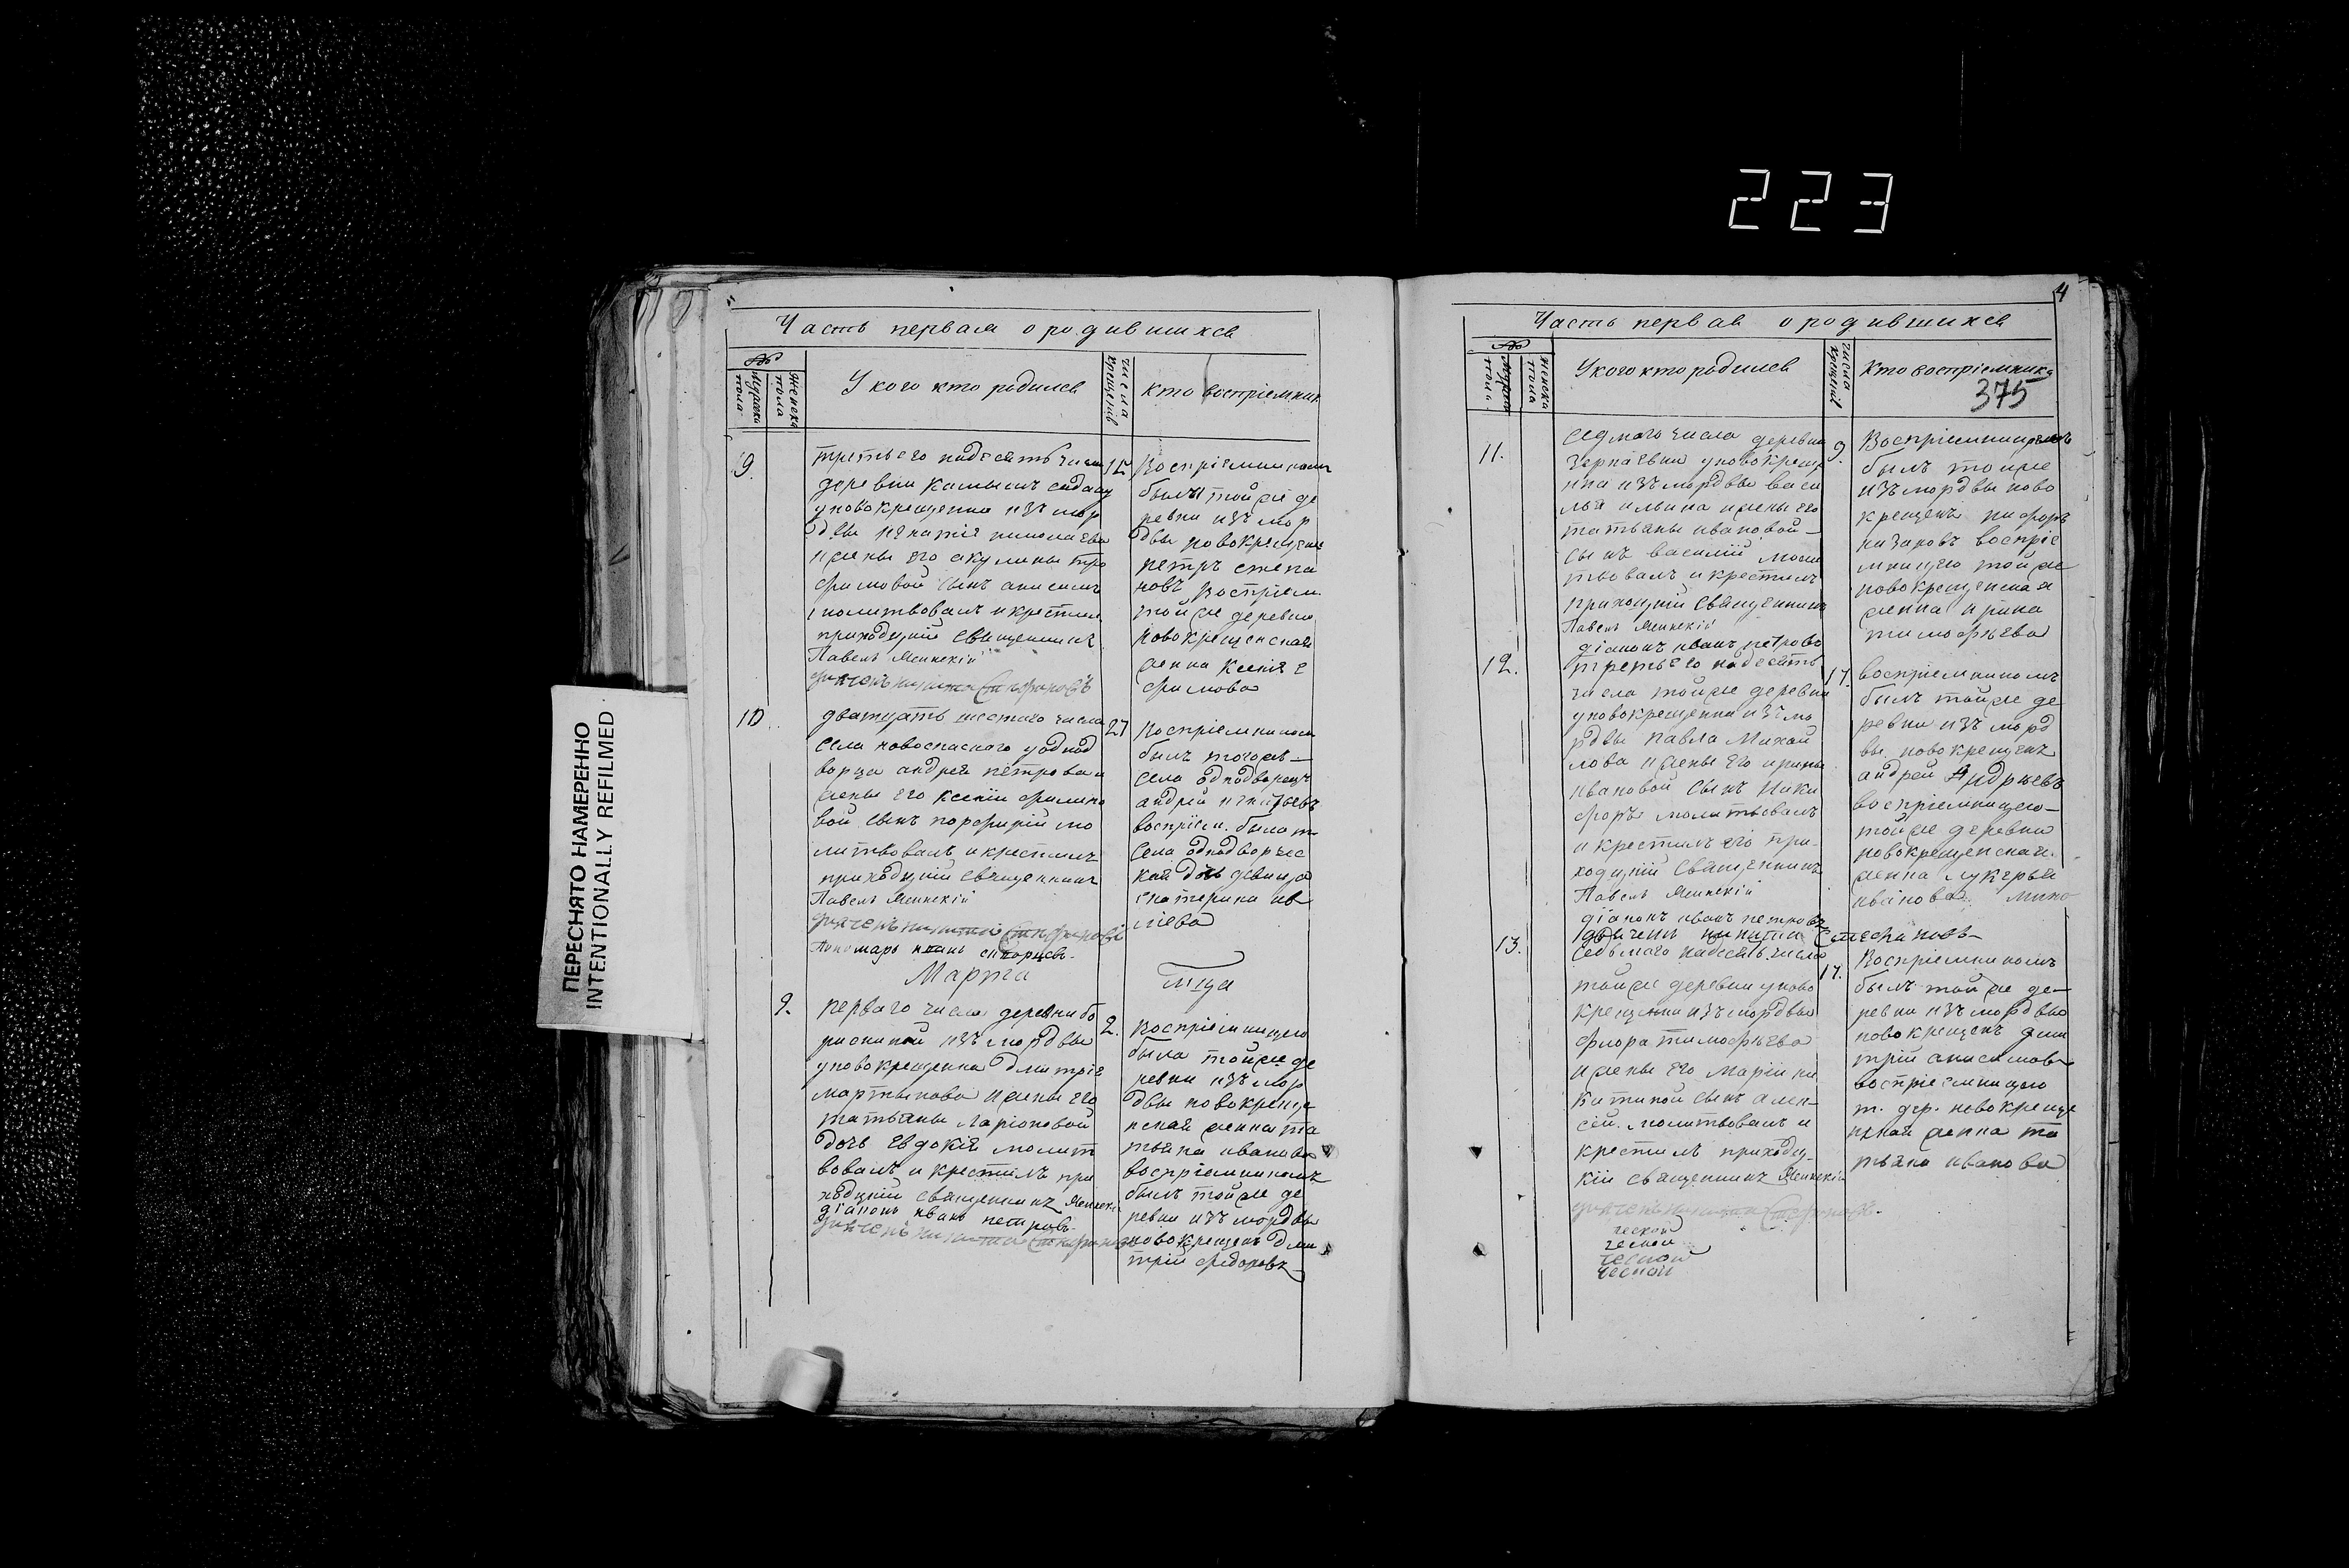 223
ПЕРЕСНЯТО НАМЕРЕННО
INTENTIONALLY REFILMED
Часть первая о родившихся
№
Мужска пола
Женска пола
У кого кто родился
числа крещенія
кто воспріемник
9.
третьего надесять числ
деревни
новокрещенна изъ мор
двы игнатія николаева
и жены его акулины тро
фимовой сынъ анисимъ
молитвовалъ и крестил
приходцкій священникъ
Павелъ Менскій
дьячекъ никита Стефановъ
15
Воспріемником
былъ той же де
ревни изъ мор
двы новокрещенъ
петръ степа
новъ воспріем
той же деревни
новокрещенская
женка ксенія е
фимова
10
дватцать шестого числа
села новоспаского у однод
ворца андрея петрова и
жены его ксеніи филипо
вой сынъ порфирій мо
литвовалъ и крестилъ
приходцкій священникъ
Павелъ Менскій
дьячекъ никита Стефановъ
Пономарь иванъ
27
Воспріемником
былъ тогожъ
села однодворецъ
андрей игнатьевъ
воспріем. была т.
села однодворчес
кая дочь девица
екатерина ив
лиева
Марта
мца
9.
перваго числа деревни бо
изъ мордвы
у новокрещенна дмитрія
мартынова и жены его
татьяны ларіоновой
дочь евдокія молит
вовалъ и крестилъ при
ходцкій священникъ Менскій
діаконъ иванъ петровъ
дьячекъ никита Стефановъ
2.
воспріемницею
была той же де
ревни изъ мор
двы новокреще
нская женка та
тьяна иванова
воспріемникомъ
былъ той же де
ревни изъ мордвы
новокрещенъ дми
трій федоровъ
4
Часть первая о родившихся
№
Мужска пола
женска пола
У кого кто родился
числа крещеніе
Кто воспріемники
375
11.
седмаго числа деревни
у новокреще
нна изъ мордвы васи
лья ильина и жены его
татьяны ивановой
сынъ василій моли
твовалъ и крестилъ
приходцкій Священникъ
Павелъ Менскій
діаконъ иванъ петровъ
9.
Воспріемникомъ
былъ той же
изъ мордвы ново
крещенъ никифоръ
назаровъ воспріе
мницею той же
новокрещенская
женка ирина
тимофѣева
12.
третьего надесять
числа той же деревни
у новокрещенна изъ мо
рдвы Павла Михай
лова и жены его ирины
ивановой сынъ Ники
форъ молитвовалъ
и крестилъ его при
ходцкій Священникъ
Павелъ Менскій
діаконъ иванъ петровъ
дьячекъ никита Стефановъ
17.
воспріемникомъ
былъ той же де
ревни изъ морд
вы новокрещенъ
андрей Андрѣевъ
воспріемницею
той же деревни
новокрещенская
женка лукерья
иванова
13.
Седьмаго надесять числа
той же деревни у ново
крещенна изъ мордвы
Флора тимофѣева
и жены его Маріи ни
китиной сынъ алек
сей. молитвовалъ и
крестилъ приходц
кій священникъ Менскій
дьячекъ никита Стефановъ
17.
Воспріемникомъ
былъ той же де
ревни изъ мордвы
новокрещенъ дми
трій анисимовъ
воспріемницею
т. дер. новокреще
нская женка та
тьяна иванова
ческой
ческой
ческой
ческой